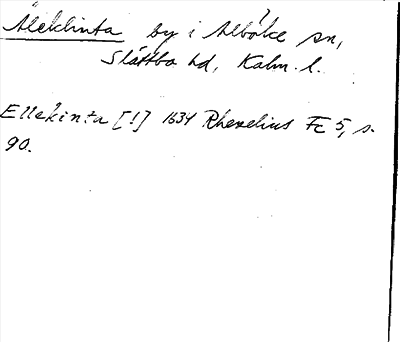 Äleklinta by i Alböke sn,
Slättbo hd, Kalm. l.
Ellekinta [!] 1634 Rhezelius Fc 5, s.
90.